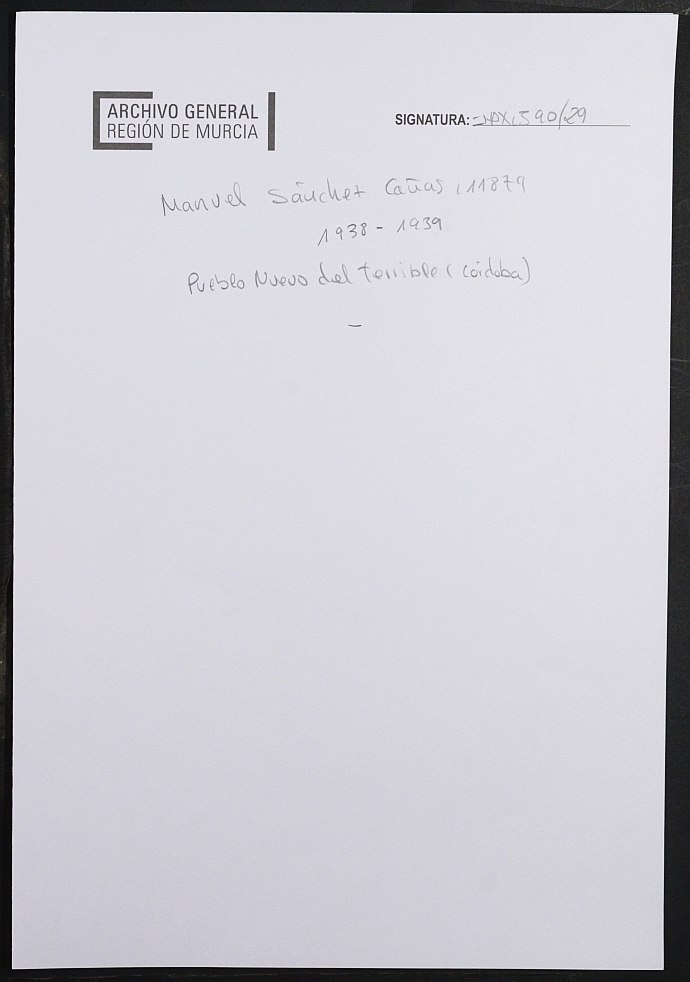 ARCHIVO GENERAL
REGIÓN DE MURCIA
SIGNATURA: 590/29
Manuel Sánchez Cañas, 11879
1938 - 1939
Pueblo Nuevo del Terrible (Córdoba)